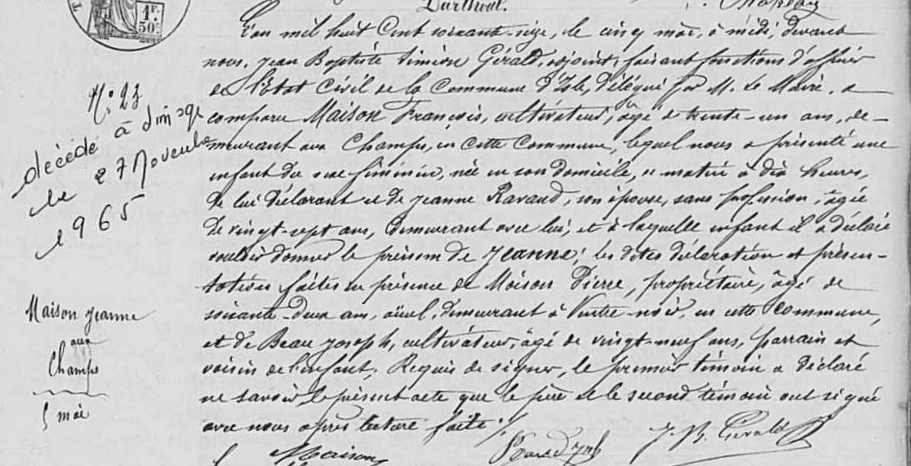 Darthout.
1F.
50c
L'an mil huit cent soixante-seize, le cinq mai, à midi, devant
nous, Jean Baptiste Siméon Gérald, adjoint, faisant fonctions d'officier
de l'Etat civil de la Commune d'Isle, délégué par M. Le Maire, a
comparu Maison François, cultivateur, agé de trente-un ans, de-
meurant aux Champs, en cette Commune, lequel nous a présenté une
enfant du sexe féminin, née en son domicile, ce matin à dix heures,
de lui déclarant et de Jeanne Ravaud, son épouse, sans profession, âgée
de vingt-sept ans, demeurant avec lui, et à laquelle enfant il a déclaré
vouloir donner le prénom de Jeanne; les dites déclaration et présen-
tation faites en présence de Maison Pierre, propriétaire, âgé de
soixante-deux ans, aïeul, demeurant à Ventre-noir, en cette commune,
et de Beau Joseph, cultivateur, âgé de vingt-neuf ans, parrain et
voisin de l'enfant. Requis de signer, le premier témoin a déclaré
ne savoir le présent acte que le père et le second témoin ont signé
avec nous après lecture faite.
Maison
J. B. Gérald
N° 23
décédé à
le 27 Novembre
1965
Maison Jeanne
aux
Champs
5 mai